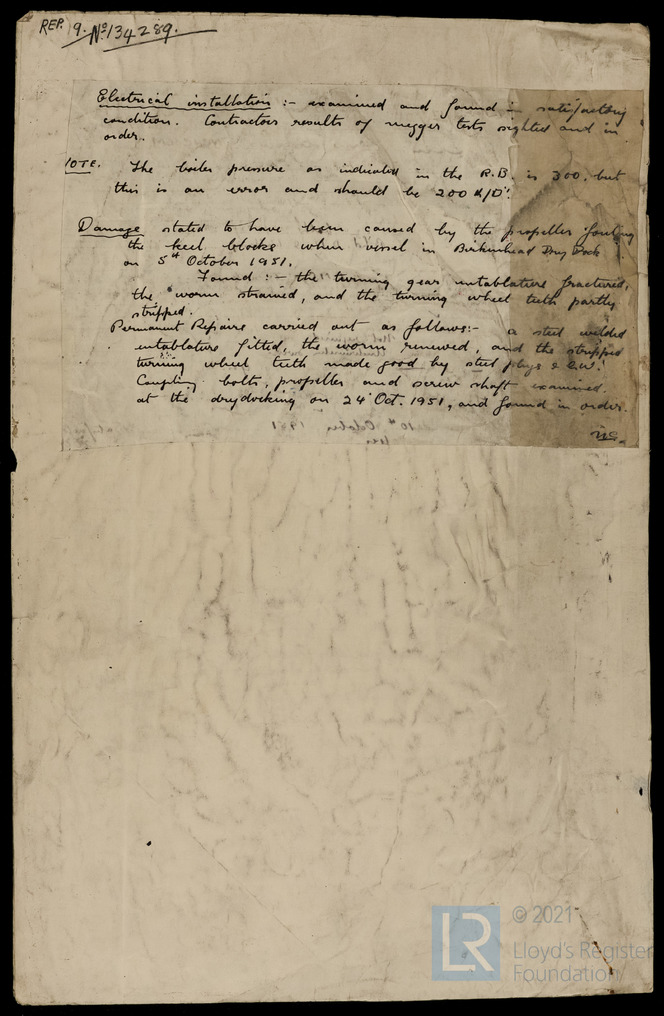 REP. 9. No. 134289.
Electrical installation :- examined and found in satisfactory
condition. Contractors results of megger tests sighted and in
order.
NOTE. The boiler pressure as indicated in the R.B. is 300, but
this is an error and should be 200 #/□".
Damage stated to have been caused by the propeller fouling
the keel blocks when vessel in Birkenhead Dry Dock
on 5th October 1951.
Found :- the turning gear entablature fractured,
the worm strained, and the turning wheel teeth partly
stripped.
Permanent Repairs carried out as follows:- a steel welded
entablature fitted, the worm renewed, and the stripped
turning wheel teeth made good by steel plugs & E.W.
Coupling bolts, propeller and screw shaft examined
at the drydocking on 24 Oct. 1951, and found in order.
© 2021
Lloyd's Register
Foundation
LR